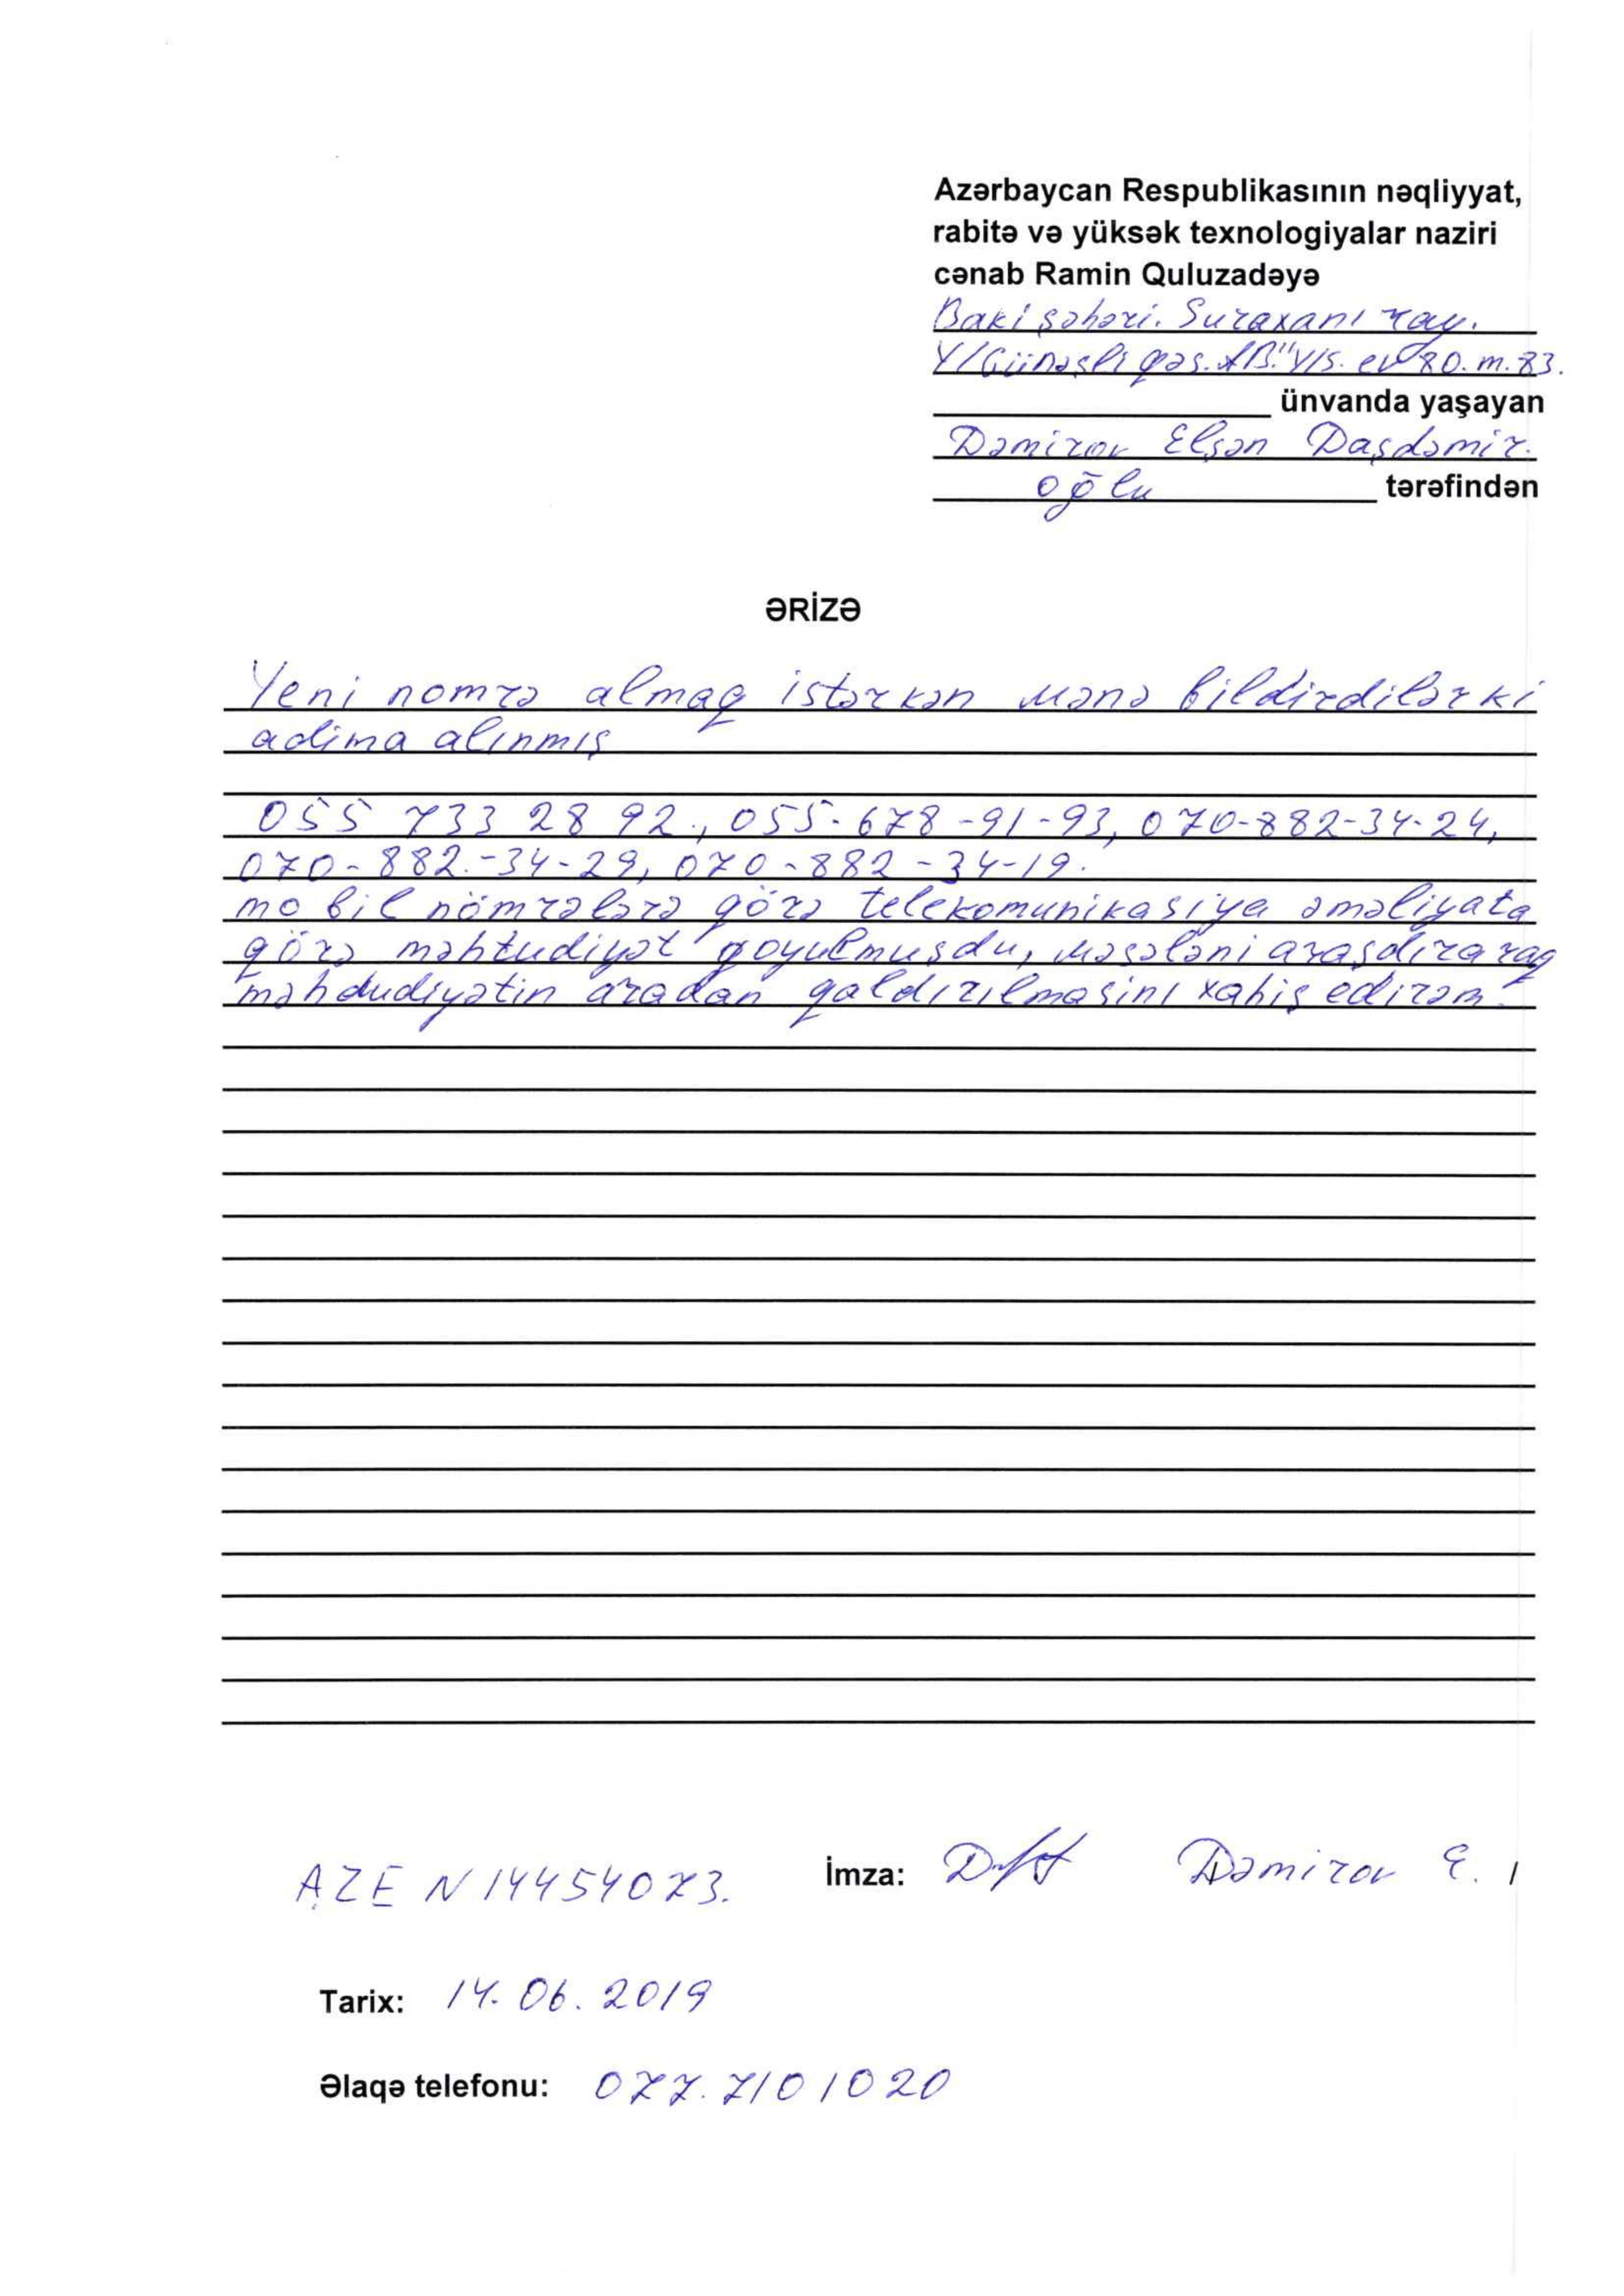 Azərbaycan Respublikasının nəqliyyat,
rabitə və yüksək texnologiyalar naziri
cənab Ramin Quluzadəyə
Baki şəhəri. Suraxanı ray.
Y/Günəşli qəs. "AB" y/s. ev 80. m. 83.
ünvanda yaşayan
Dəmirov Elşən Daşdəmir.
oğlu tərəfindən
ƏRİZƏ
Yeni nomrə almaq istərkən mənə bildirdilər ki
adima alınmış
055 733 28 92., 055-678-91-93, 070-882-34-24,
070-882.-34-29, 070-882-34-19.
mobil nömrələrə görə telekomunikasiya əməliyata
görə məhtudiyət qoyulmuşdu, məsələni araşdıraraq
məhdudiyətin aradan qaldırılmasını xahiş edirəm.
AZE N 14454073. İmza: Dəmirov E. /
Tarix: 14.06.2019
Əlaqə telefonu: 077.7101020